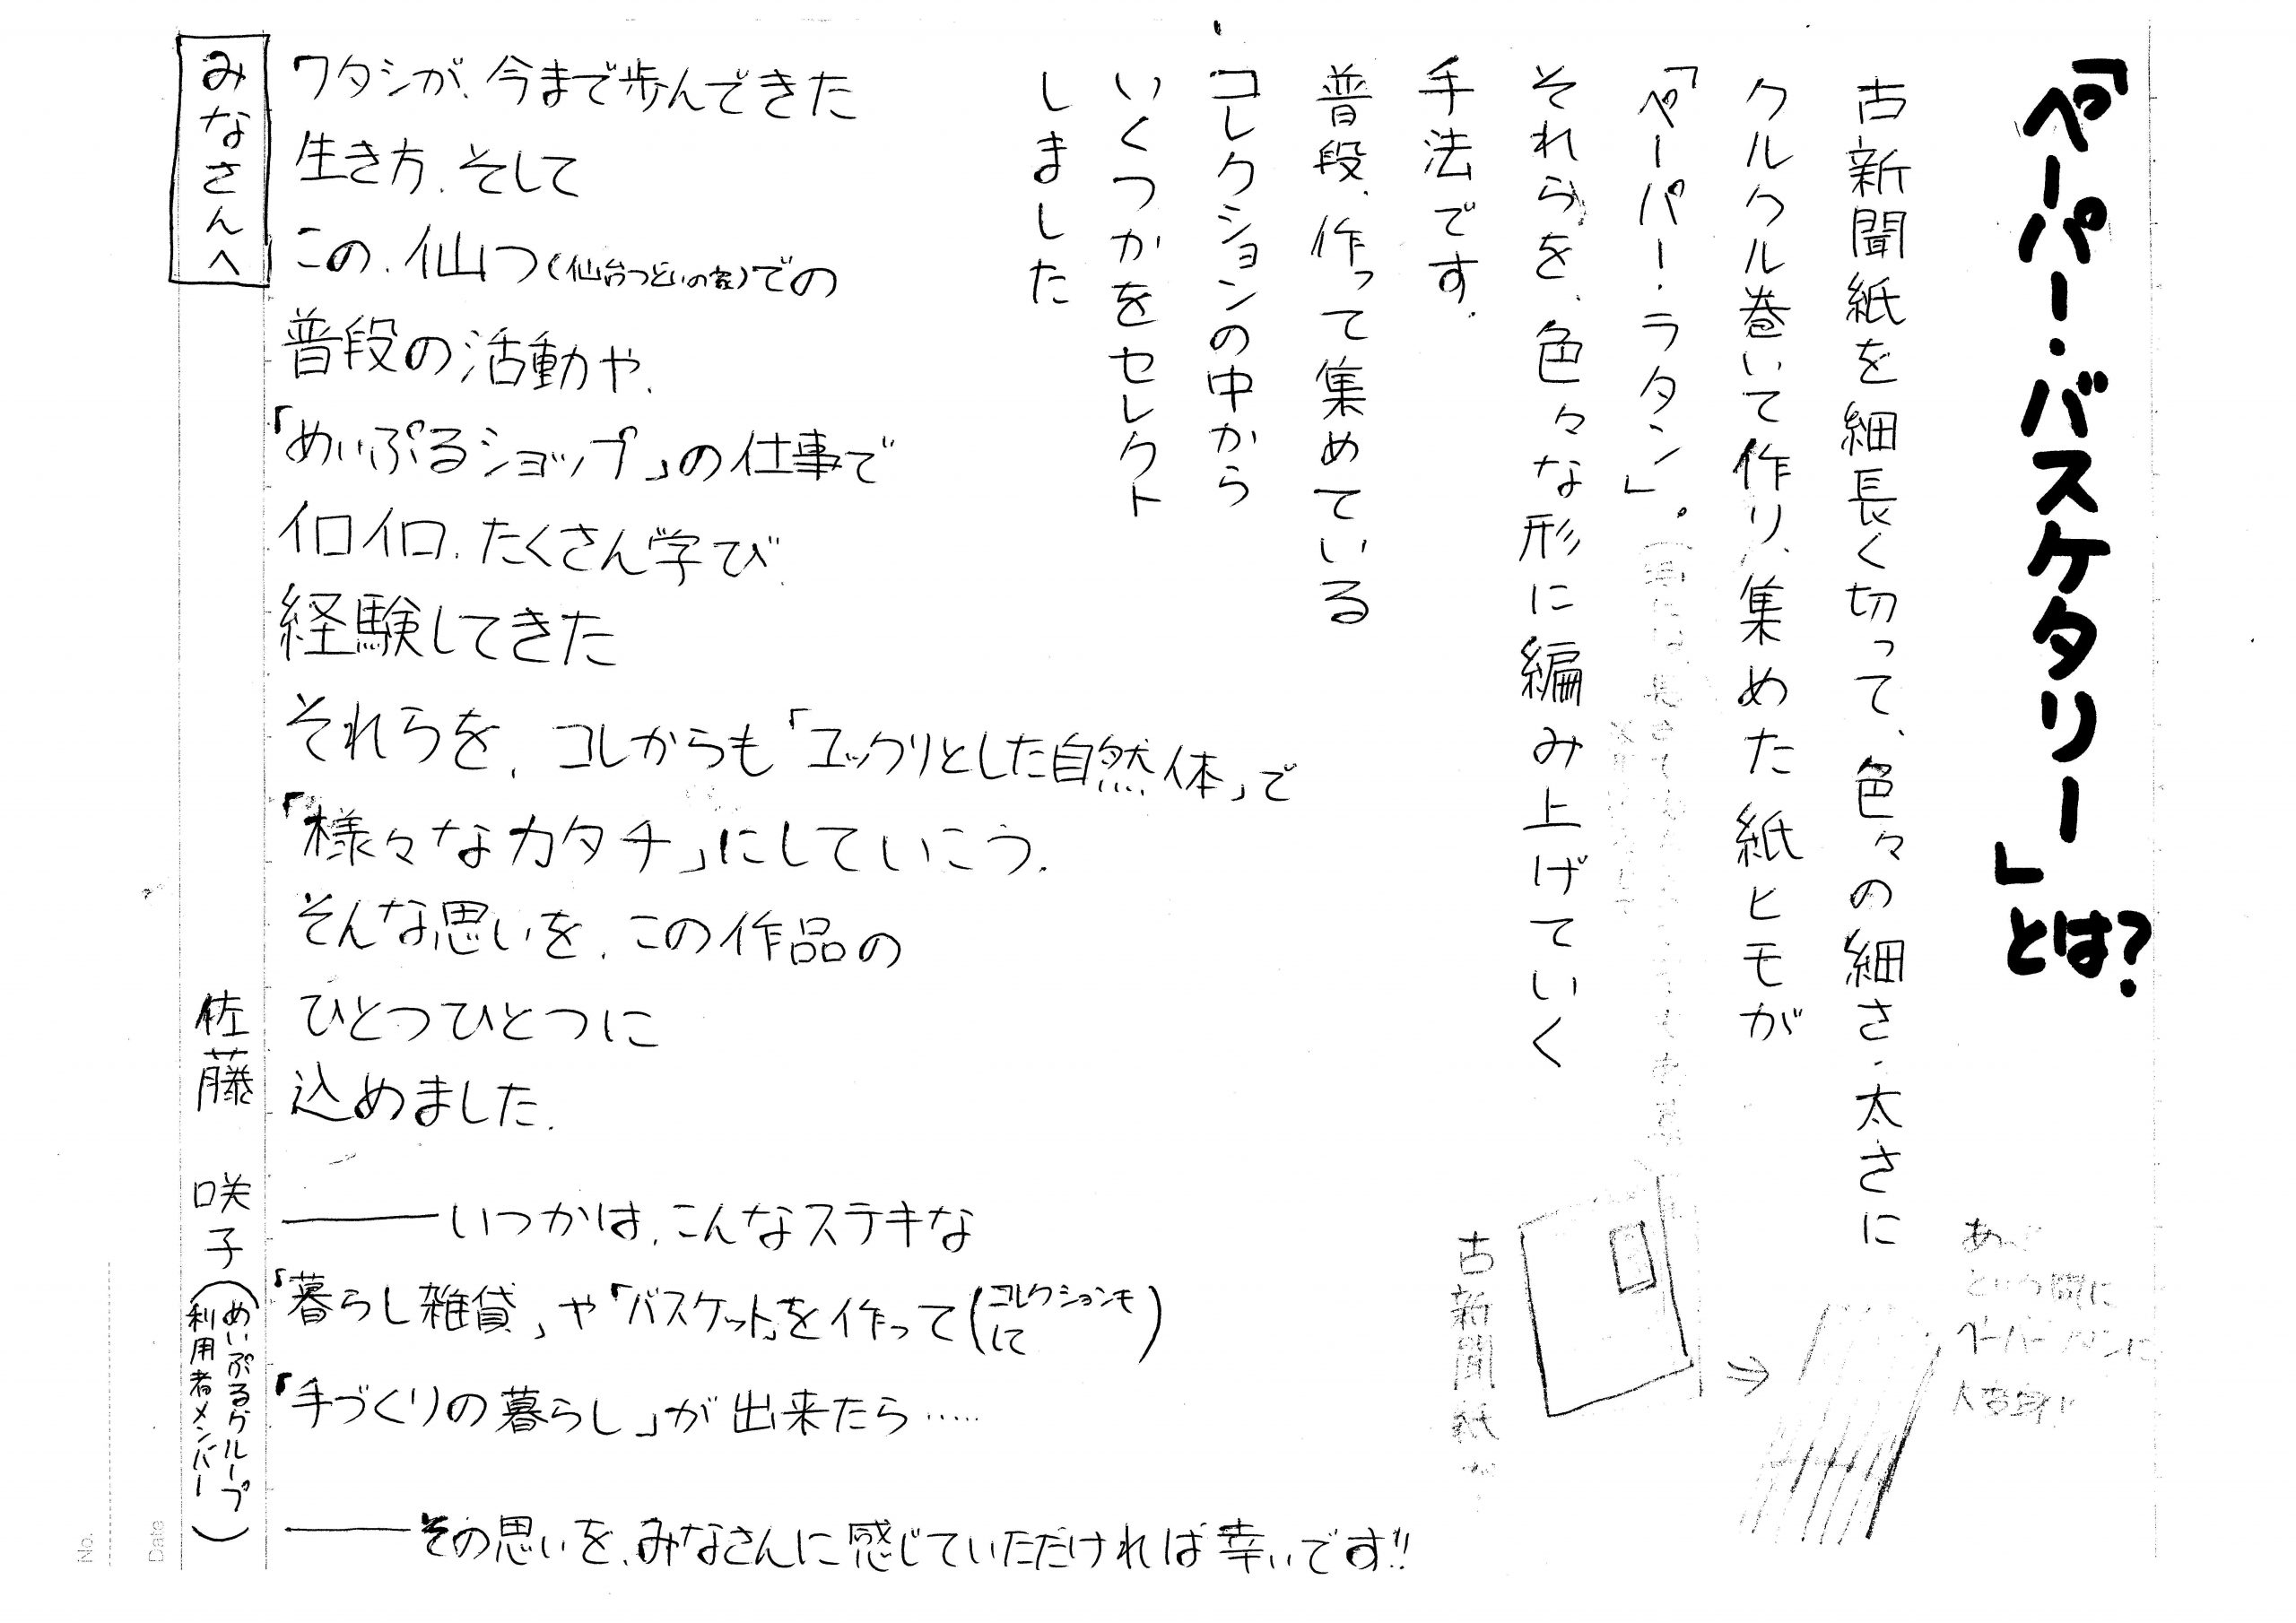 「ペーパー・バスケタリー」とは?
古新聞紙を細長く切って、色々の細さ・太さに
クルクル巻いて作り、集めた紙ヒモが
「ペーパー・ラタン」。
それらを、色々な形に編み上げていく
手法です.
普段、作って集めている
コレクションの中から
いくつかをセレクト
しました
古新聞紙
あっ
という間に
ペーパーラタンに
ワタシが、今まで歩んできた
生き方、そして
この、仙つ(仙台つどいの家)での
普段の活動や、
「めいぷるショップ」の仕事で
イロイロ、たくさん学び、
経験してきた
それらを、コレからも「ユックリとした自然体」で
「様々なカタチ」にしていこう.
そんな思いを、この作品の
ひとつひとつに
込めました.
――いつかは、こんなステキな
「暮らし雑貨」や「バスケット」を作って(コレクションモにて)
「手づくりの暮らし」が出来たら……
――その思いを、みなさんに感じていただければ幸いです!!
みなさんへ
佐藤 咲子(めいぷるグループ
利用者メンバー)
No.
Date